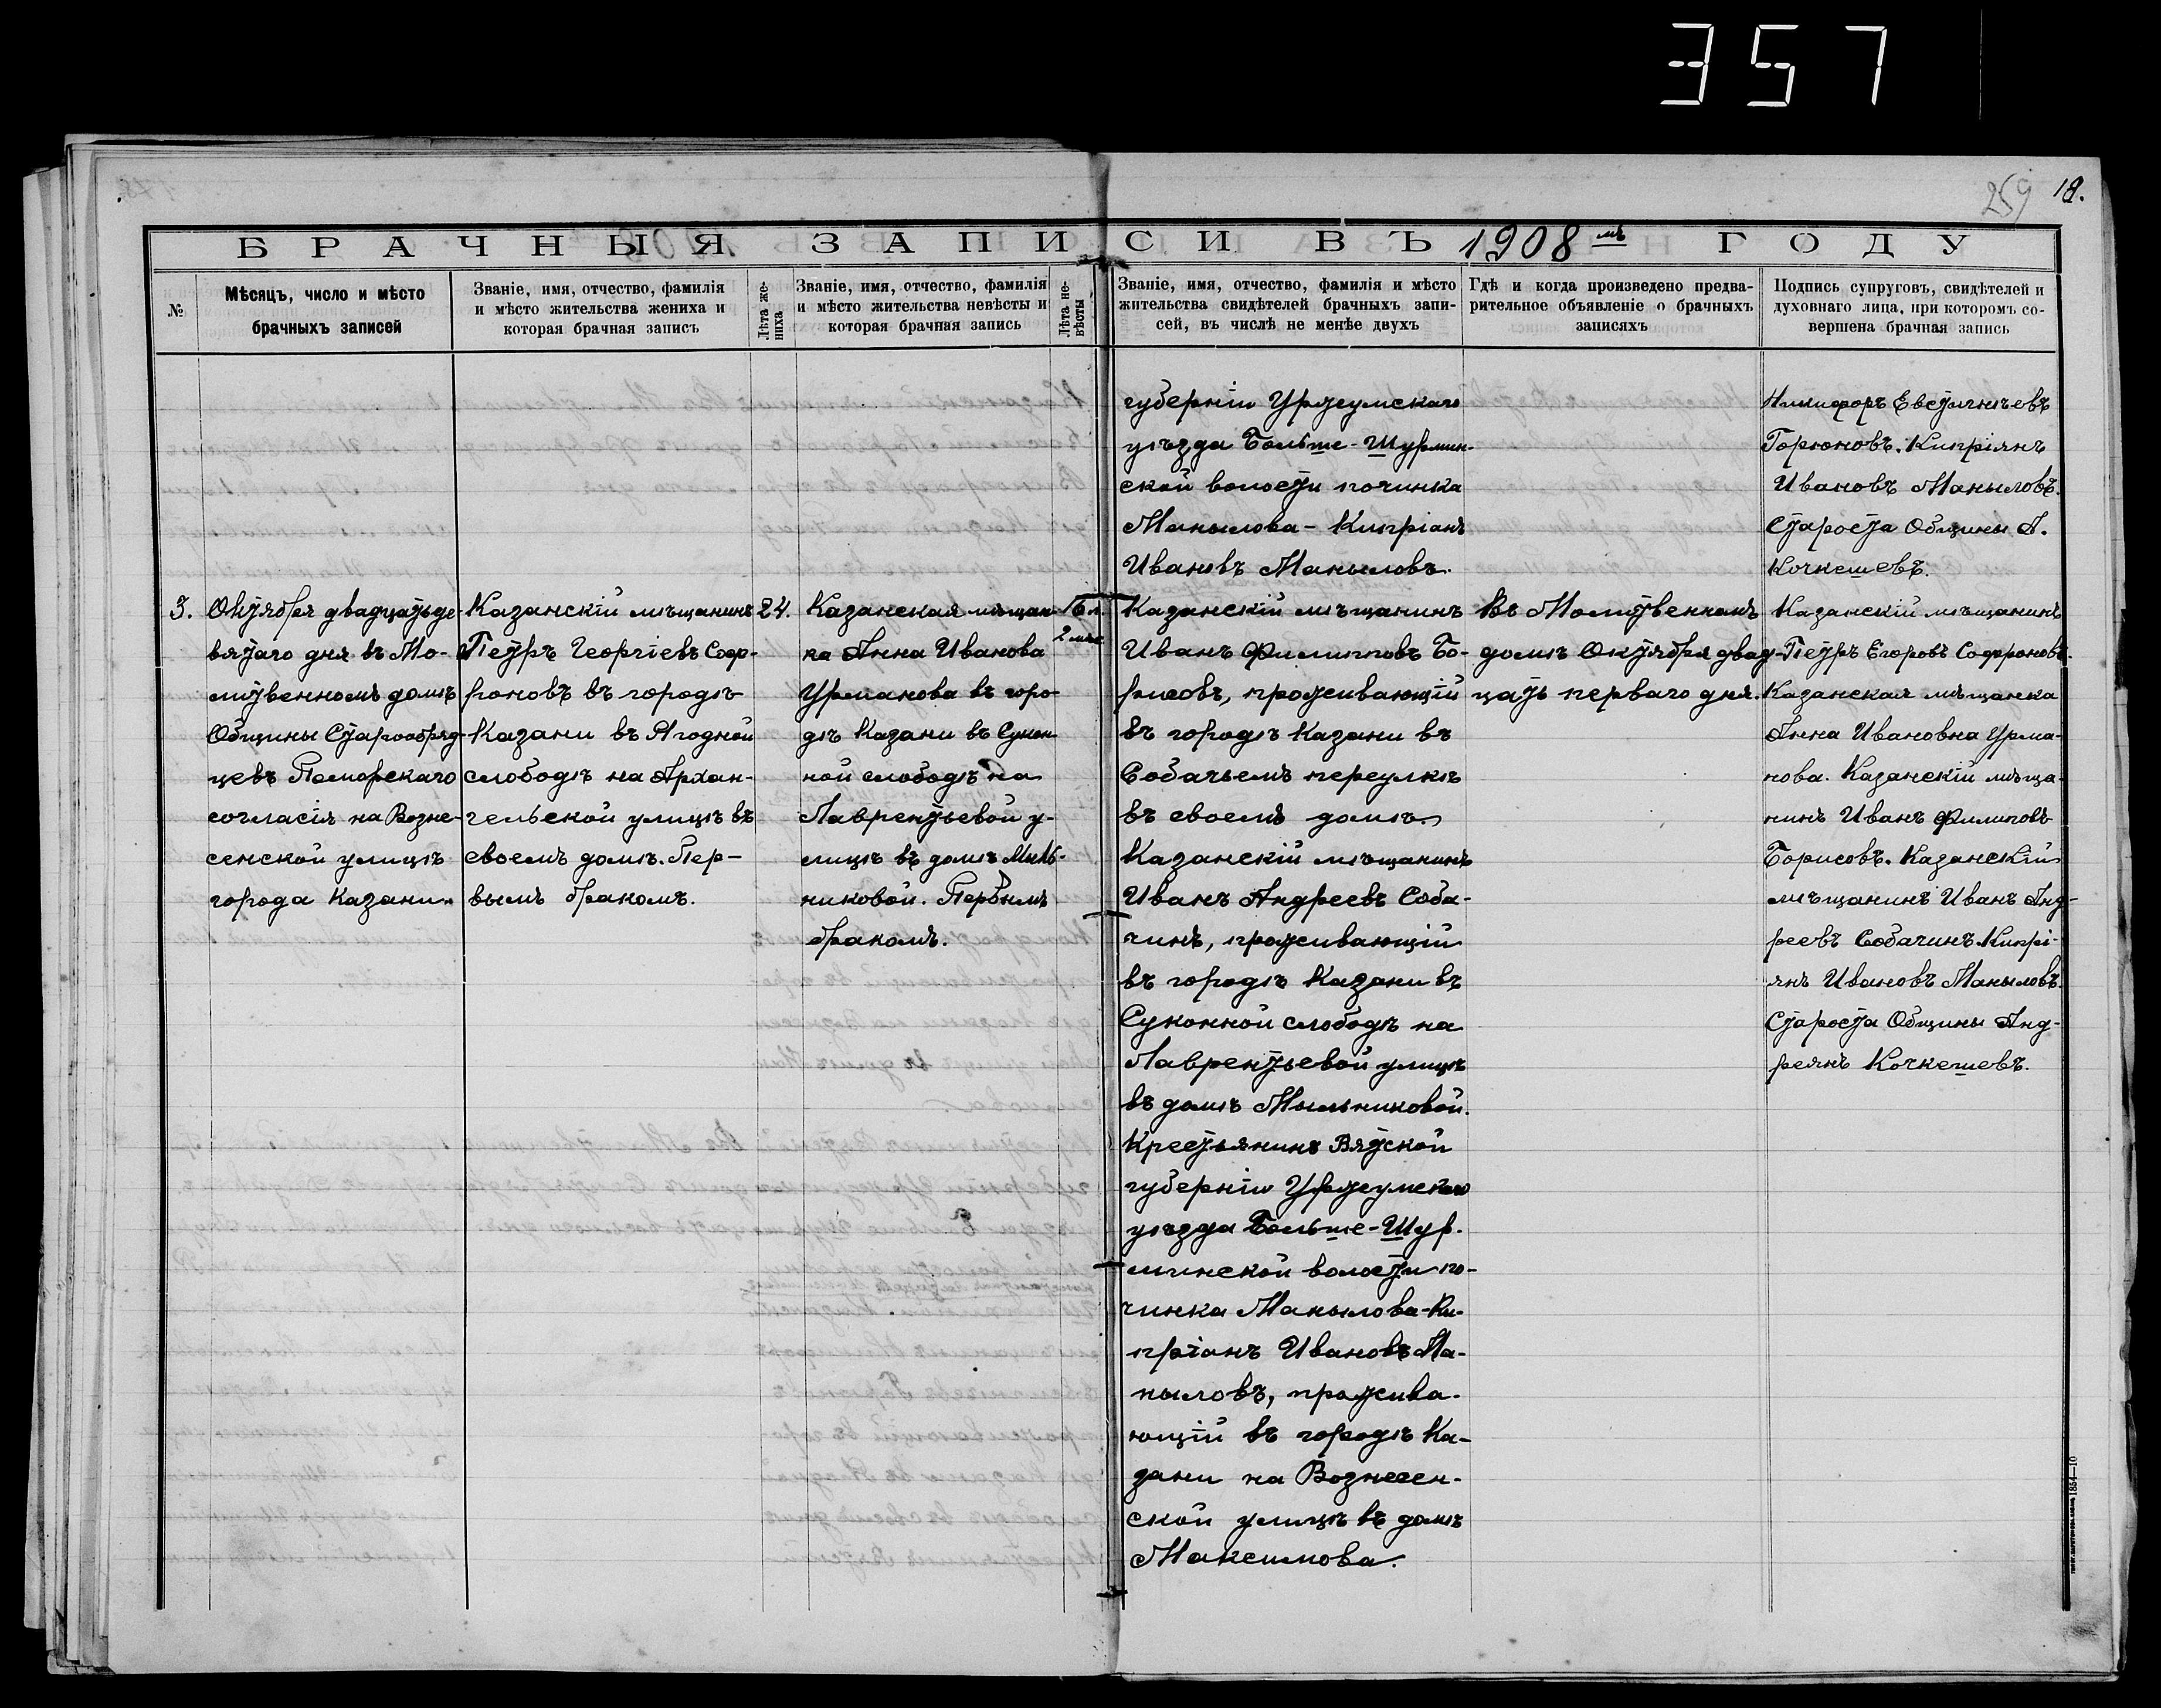 357
259 18.
БРАЧНЫЯ ЗАПИСИ ВЪ 1908мъ ГОДУ
№
Мѣсяцъ, число и мѣсто
брачныхъ записей
Званіе, имя, отчество, фамилія
и мѣсто жительства жениха и
которая брачная запись
Лѣта же-
ниха
Званіе, имя, отчество, фамилія
и мѣсто жительства невѣсты и
которая брачная запись
Лѣта не-
вѣсты
Званіе, имя, отчество, фамилія и мѣсто
жительства свидѣтелей брачныхъ запи-
сей, въ числѣ не менѣе двухъ
Гдѣ и когда произведено предва-
рительное объявленіе о брачныхъ
записяхъ
Подпись супруговъ, свидѣтелей и
духовнаго лица, при которомъ со-
вершена брачная запись
губерніи Уржумскаго
уѣзда Больше-Шурмин-
ской волости починка
Манылова - Кипріанъ
Ивановъ Маныловъ.
Никифоръ Евстигнѣевъ
Горюновъ. Кипріянъ
Ивановъ Маныловъ.
Староста Общины А.
Кочкешевъ.
3.
Октября двадцать де-
вятаго дня въ Мо-
литвенномъ домѣ
Общины Старообряд-
цевъ Поморскаго
согласія на Возне-
сенской улицѣ
города Казани.
Казанскій мѣщанинъ
Петръ Георгіевъ Соф-
роновъ въ городѣ
Казани въ Ягодной
слободѣ на Архан-
гельской улицѣ въ
своемъ домѣ. Пер-
вымъ бракомъ.
24.
Казанская мѣщан-
ка Анна Иванова
Урманова въ горо-
дѣ Казани въ Сукон-
ной слободѣ на
Лаврентьевой у-
лицѣ въ домѣ Мыль-
никовой. Первымъ
бракомъ.
16 л.
2 мѣс
Казанскій мѣщанинъ
Иванъ Филипповъ Бо-
рисовъ, проживающій
въ городѣ Казани въ
Собачьемъ переулкѣ
въ своемъ домѣ.
Казанскій мѣщанинъ
Иванъ Андреевъ Соба-
чинъ, проживающій
въ городѣ Казани въ
Суконной слободѣ на
Лаврентьевой улицѣ
въ домѣ Мыльниковой.
Крестьянинъ Вятской
губерніи Уржумскаго
уѣзда Больше-Шур-
минской волости по-
чинка Манылова-Ки-
пріанъ Ивановъ Ма-
ныловъ, прожива-
ющій въ городѣ Ка-
зани на Вознесен-
ской улицѣ въ домѣ
Максимова.
Въ Молитвенномъ
домѣ Октября двад-
цать перваго дня.
Казанскій мѣщанинъ
Петръ Егоровъ Софроновъ.
Казанская мѣщанка
Анна Ивановна Урма-
нова. Казанскій мѣща-
нинъ Иванъ Филиповъ
Борисовъ. Казанскій
мѣщанинъ Иванъ Анд-
реевъ Собачинъ. Кипрі-
янъ Ивановъ Маныловъ.
Староста Общины Анд-
реянъ Кочкешевъ.